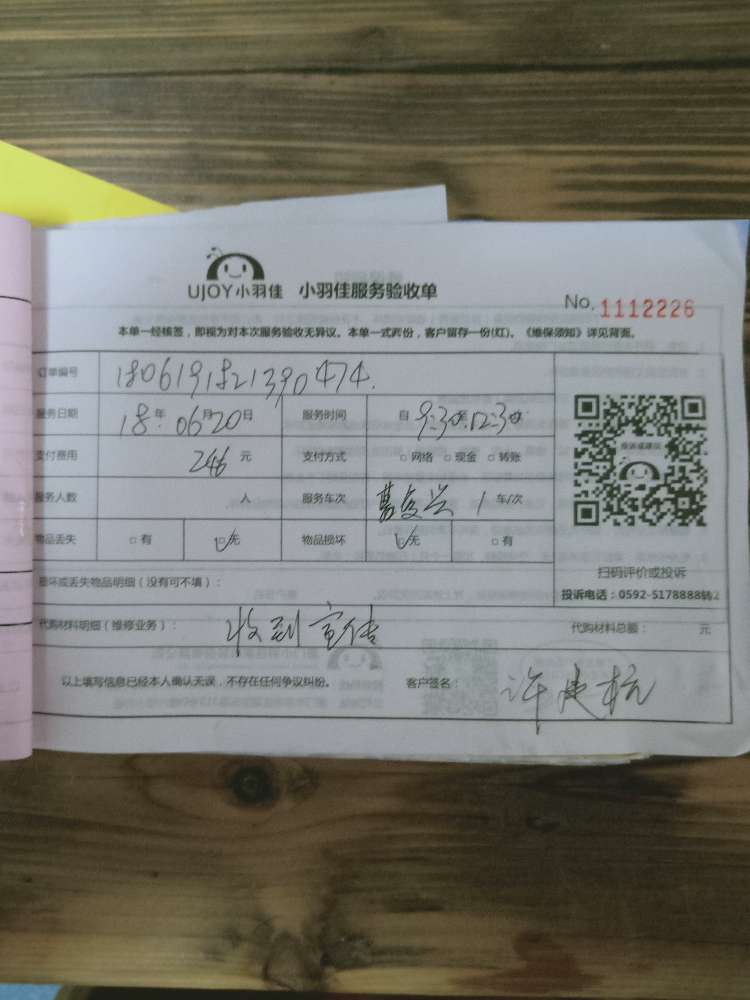 UJOY小羽佳 小羽佳服务验收单
No. 1112226
本单一经核签，即视为对本次服务验收无异议。本单一式两份，客户留存一份(红)。《维保须知》详见背面。
订单编号 1806191821390474.
服务日期 18年 06月20日 服务时间 自 9:30至12:30
支付费用 246 元 支付方式 □网络 □现金 □转账
服务人数 人 服务车次 1 车/次
物品丢失 □有 □无 物品损坏 □无 □有
损坏或丢失物品明细（没有可不填）：
扫码评价或投诉
投诉电话：0592-5178888转2
代购材料明细（维修业务）： 收到宣传 代购材料总额： 元
以上填写信息已经本人确认无误，不存在任何争议纠纷。 客户签名： 许建杭